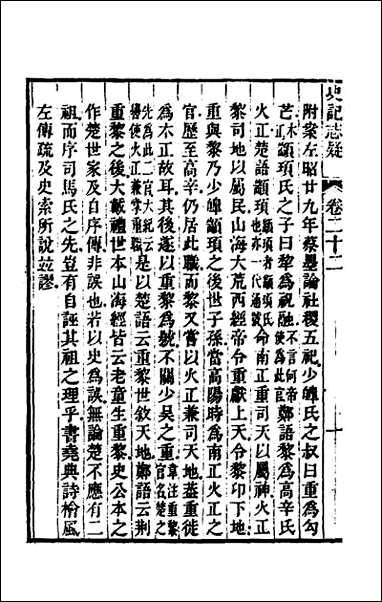 史記志疑 卷二十二 十
附案左昭廿九年蔡墨論社稷五祀少皞氏之叔曰重為勾
芒木正顓頊氏之子曰犂為祝融不言何帝使為此官鄭語黎為高辛氏
火正楚語顓頊顓頊者顓頊氏也亦一代通號命南正重司天以屬神火正
黎司地以屬民山海大荒西經帝令重獻上天令黎印下地
重與黎乃少皞顓頊之後世子孫當高陽時為南正火正之
官歷至高辛仍居此職而黎又嘗以火正兼司天地蓋重徙
為木正故耳其後遂以重黎為號不關少昊之重韋注重黎官名楚之
先為此二官大紀云使火正兼掌重職是以楚語云重黎世敘天地鄭語云荆
重黎之後大戴禮世本山海經皆云老童生重黎史公本之
作楚世家及自序傳非誤也若以史為誤無論楚不應有二
祖而序司馬氏之先豈有自誣其祖之理乎書堯典詩檜風
左傳疏及史索所說竝謬